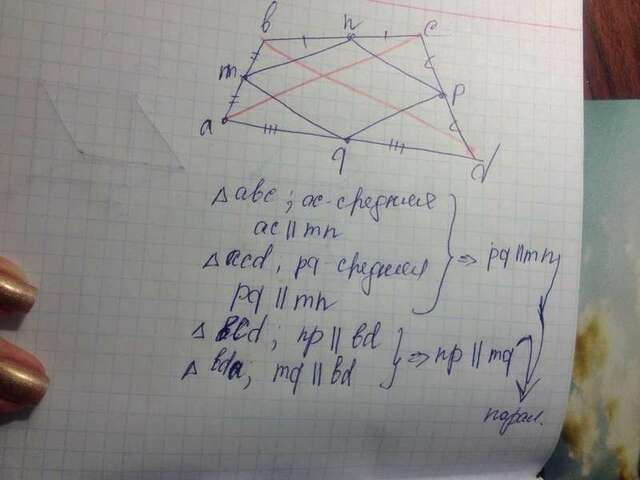 b n c
m p
a
q d
Δ abc; ac - средняя
ac || mn
Δ acd, pq - средняя
pq || mn
} ⇒ pq || mn
Δ bcd; np || bd
Δ bda; mq || bd
} ⇒ np || mq
парал.